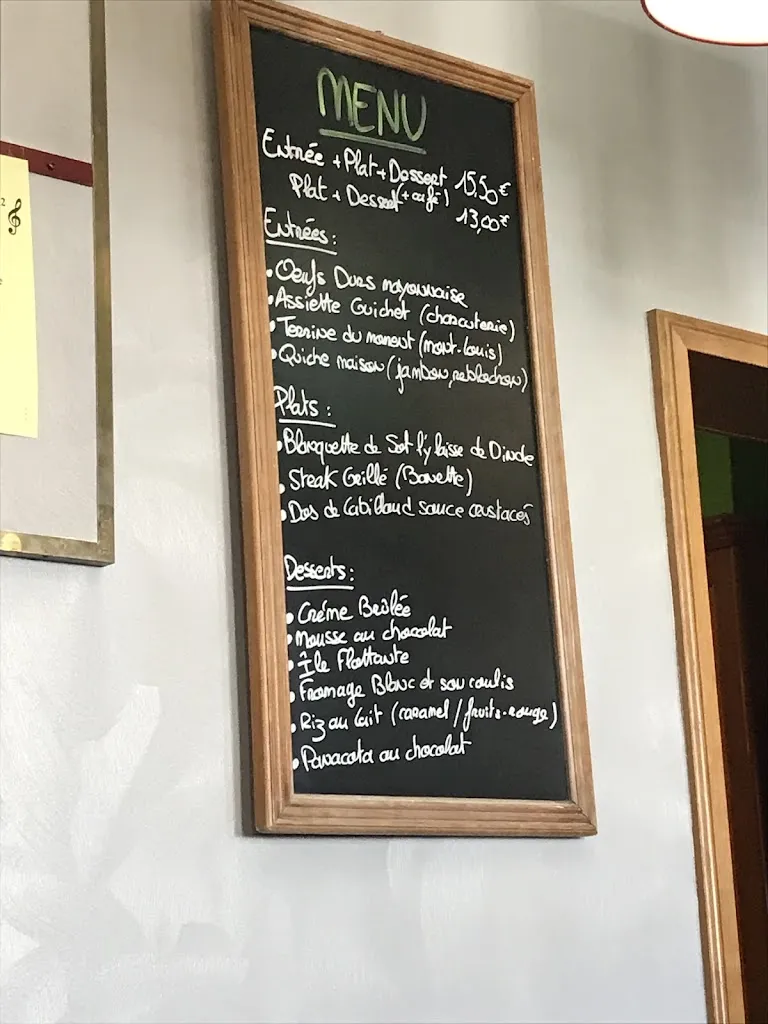 MENU
Entrée + Plat + Dessert 15,50€
Plat + Dessert (+ café) 13,00€
Entrées :
• Oeufs Durs mayonnaise
• Assiette Guichet (charcuterie)
• Terrine du moment (mont-louis)
• Quiche maison (jambon, reblochon)
Plats :
• Blanquette de Sot l'y laisse de Dinde
• Steak Grillé (Bavette)
• Dos de Cabillaud sauce crustacés
Desserts :
• Crème Brûlée
• Mousse au chocolat
• Île Flottante
• Fromage Blanc et son coulis
• Riz au lait (caramel / fruits-rouge)
• Panacota au chocolat